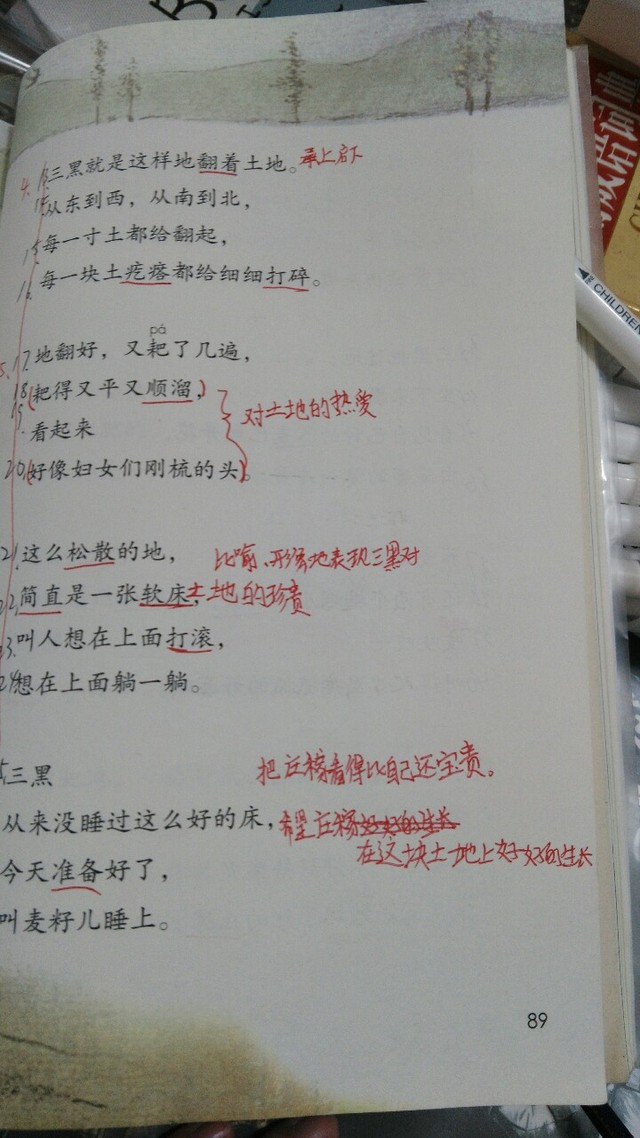 4. 13三黑就是这样地翻着土地。承上启下
14从东到西，从南到北，
15每一寸土都给翻起，
16每一块土疙瘩都给细细打碎。
pá
5. 17地翻好，又耙了几遍，
18(耙得又平又顺溜，)
对土地的热爱
19看起来
20(好像妇女们刚梳的头)。
21这么松散的地，比喻、形象地表现三黑对
22简直是一张软床，土地的珍贵
23叫人想在上面打滚，
24想在上面躺一躺。
把庄稼看得比自己还宝贵。
三黑
从来没睡过这么好的床，希望庄稼好好的生长
在这块土地上好好的生长
今天准备好了，
叫麦籽儿睡上。
89
CHILDREN